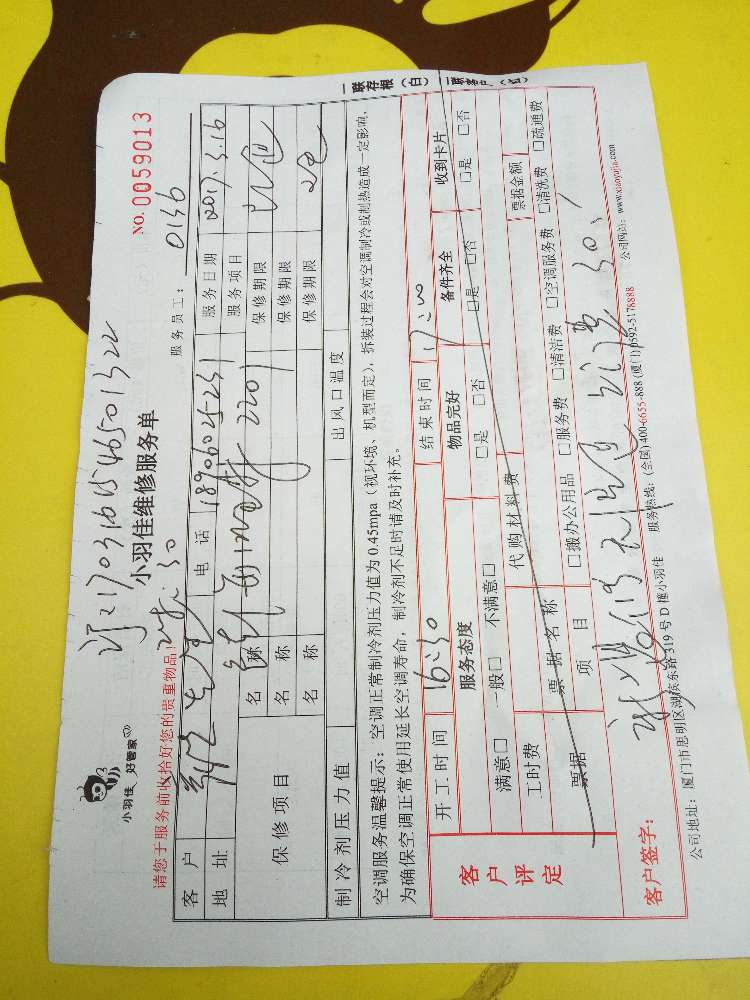 小羽佳 好管家
小羽佳维修服务单
NO. 0059013
请您于服务前收拾好您的贵重物品!
服务员工: 0136
客户
电话 18906054231
服务日期 2017.3.16
地址
2201
服务项目
保修项目
名称
保修期限
名称
保修期限
名称
保修期限
制冷剂压力值
出风口温度
空调服务温馨提示:空调正常制冷剂压力值为0.45mpa(视环境、机型而定),拆装过程会对空调制冷或制热造成一定影响,
为确保空调正常使用延长空调寿命,制冷剂不足时请及时补充。
客户评定
开工时间 16:30
结束时间 17:00
服务态度
物品完好
备件齐全
收到卡片
满意□ 一般□ 不满意□
□是 □否
□是 □否
□是 □否
工时费
代购材料费
票据
票据名称
票据金额
项目
□搬办公用品 □服务费 □清洁费 □空调服务费 □清洗费 □疏通费
客户签字:
公司地址:厦门市思明区湖滨东路319号D幢小羽佳
服务热线:(全国)400-6655-888 (厦门)0592-5178888
公司网站:www.xiaoyujia.com
一联存根(白)